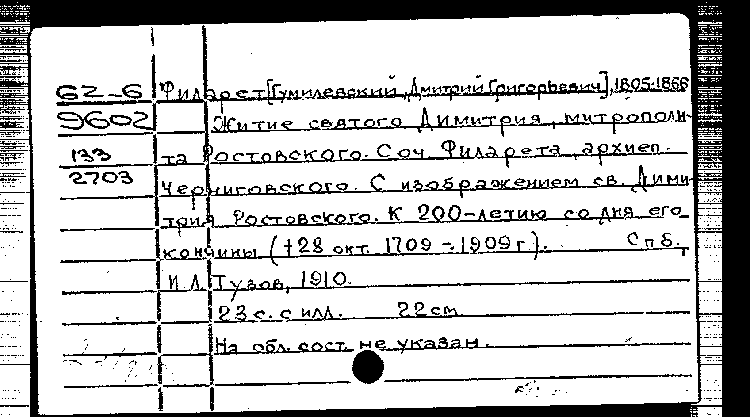 62-6 Филарет [Гумилевский, Дмитрий Григорьевич], 1805-1866
9602 Житие святого Димитрия, митрополи-
133 та Ростовского. Соч. Филарета, архиеп.
2703 Черниговского. С изображением св. Дими-
трия Ростовского. К 200-летию со дня его
кончины (†28 окт. 1709 - 1909 г.). Спб.,
И.Л. Тузов, 1910.
23 с. с илл. 22 см.
На обл. сост. не указан.